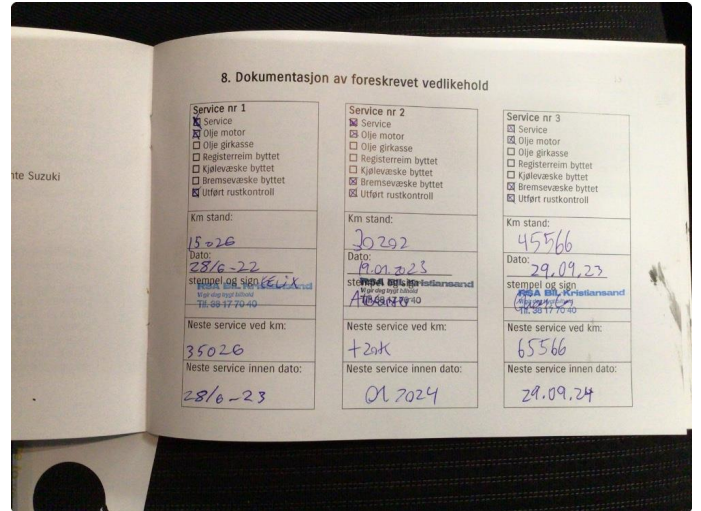 8. Dokumentasjon av foreskrevet vedlikehold
nte Suzuki
Service nr 1
Service
Olje motor
Olje girkasse
Registerreim byttet
Kjølevæske byttet
Bremsevæske byttet
Utført rustkontroll
Km stand:
15026
Dato:
28/6-22
stempel og sign
RSA BIL Kristiansand
Vi gir deg trygt bilhold
Tlf. 38 17 70 40
Neste service ved km:
35026
Neste service innen dato:
28/6-23
Service nr 2
Service
Olje motor
Olje girkasse
Registerreim byttet
Kjølevæske byttet
Bremsevæske byttet
Utført rustkontroll
Km stand:
30292
Dato:
19.01.2023
stempel og sign
RSA BIL Kristiansand
Vi gir deg trygt bilhold
Tlf. 38 17 70 40
Neste service ved km:
+20K
Neste service innen dato:
01.2024
Service nr 3
Service
Olje motor
Olje girkasse
Registerreim byttet
Kjølevæske byttet
Bremsevæske byttet
Utført rustkontroll
Km stand:
45566
Dato:
29.09.23
stempel og sign
RSA BIL Kristiansand
Vi gir deg trygt bilhold
Tlf. 38 17 70 40
Neste service ved km:
65566
Neste service innen dato:
29.09.24